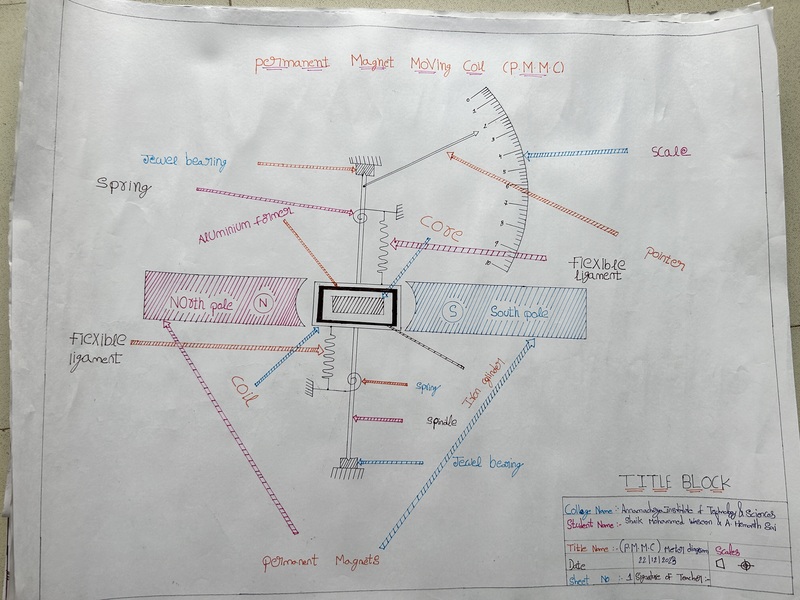 permanent Magnet Moving Coil (P.M.M.C)
0
1
2
3
4
5
6
7
Jewel bearing
Scale
Spring
Aluminium former
Core
Pointer
Flexible
ligament
North pole N
S South pole
Flexible
ligament
Coil
Spring
Iron cylinder
Spindle
Jewel bearing
permanent Magnets
TITLE BLOCK
College Name:- Annamacharya Institute of Technology & Sciences
Student Name:- Shaik Mohammed Waseem & A
Title Name:- (P.M.M.C) Meter diagram Scales
Date 22/12/2023
Sheet No :- 1 Signature of Teacher:-